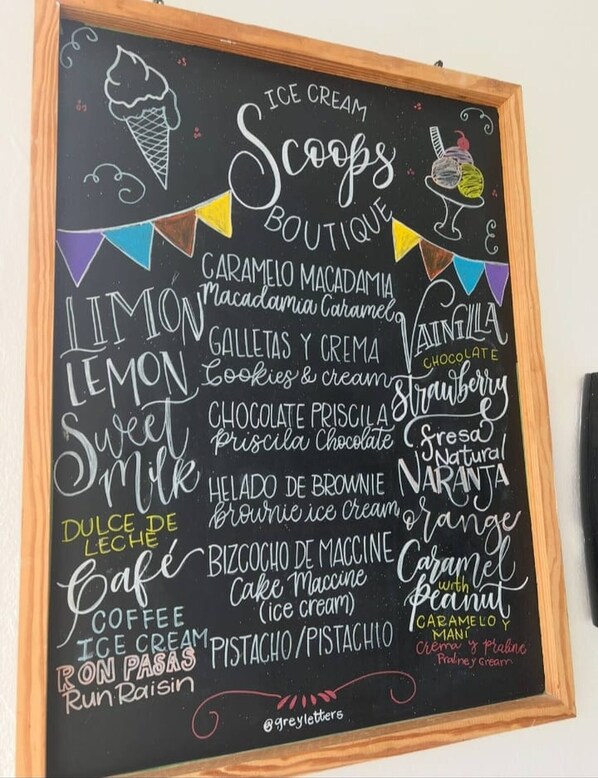 ICE CREAM
Scoops
BOUTIQUE
LIMÓN
LEMON
Sweet
Milk
DULCE DE
LECHE
Café
COFFEE
ICE CREAM
RON PASAS
Run Raisin
CARAMELO MACADAMIA
Macadamia Caramel
GALLETAS Y CREMA
Cookies & cream
CHOCOLATE PRISCILA
Priscila Chocolate
HELADO DE BROWNIE
brownie ice cream
BIZCOCHO DE MACCINE
Cake Maccine
(ice cream)
PISTACHO/PISTACHIO
VAINILLA
CHOCOLATE
Strawberry
fresa
Natural
NARANJA
orange
Caramel
with
peanut
CARAMELO Y
MANÍ
Crema y praline
Praline y Cream
@greyletters